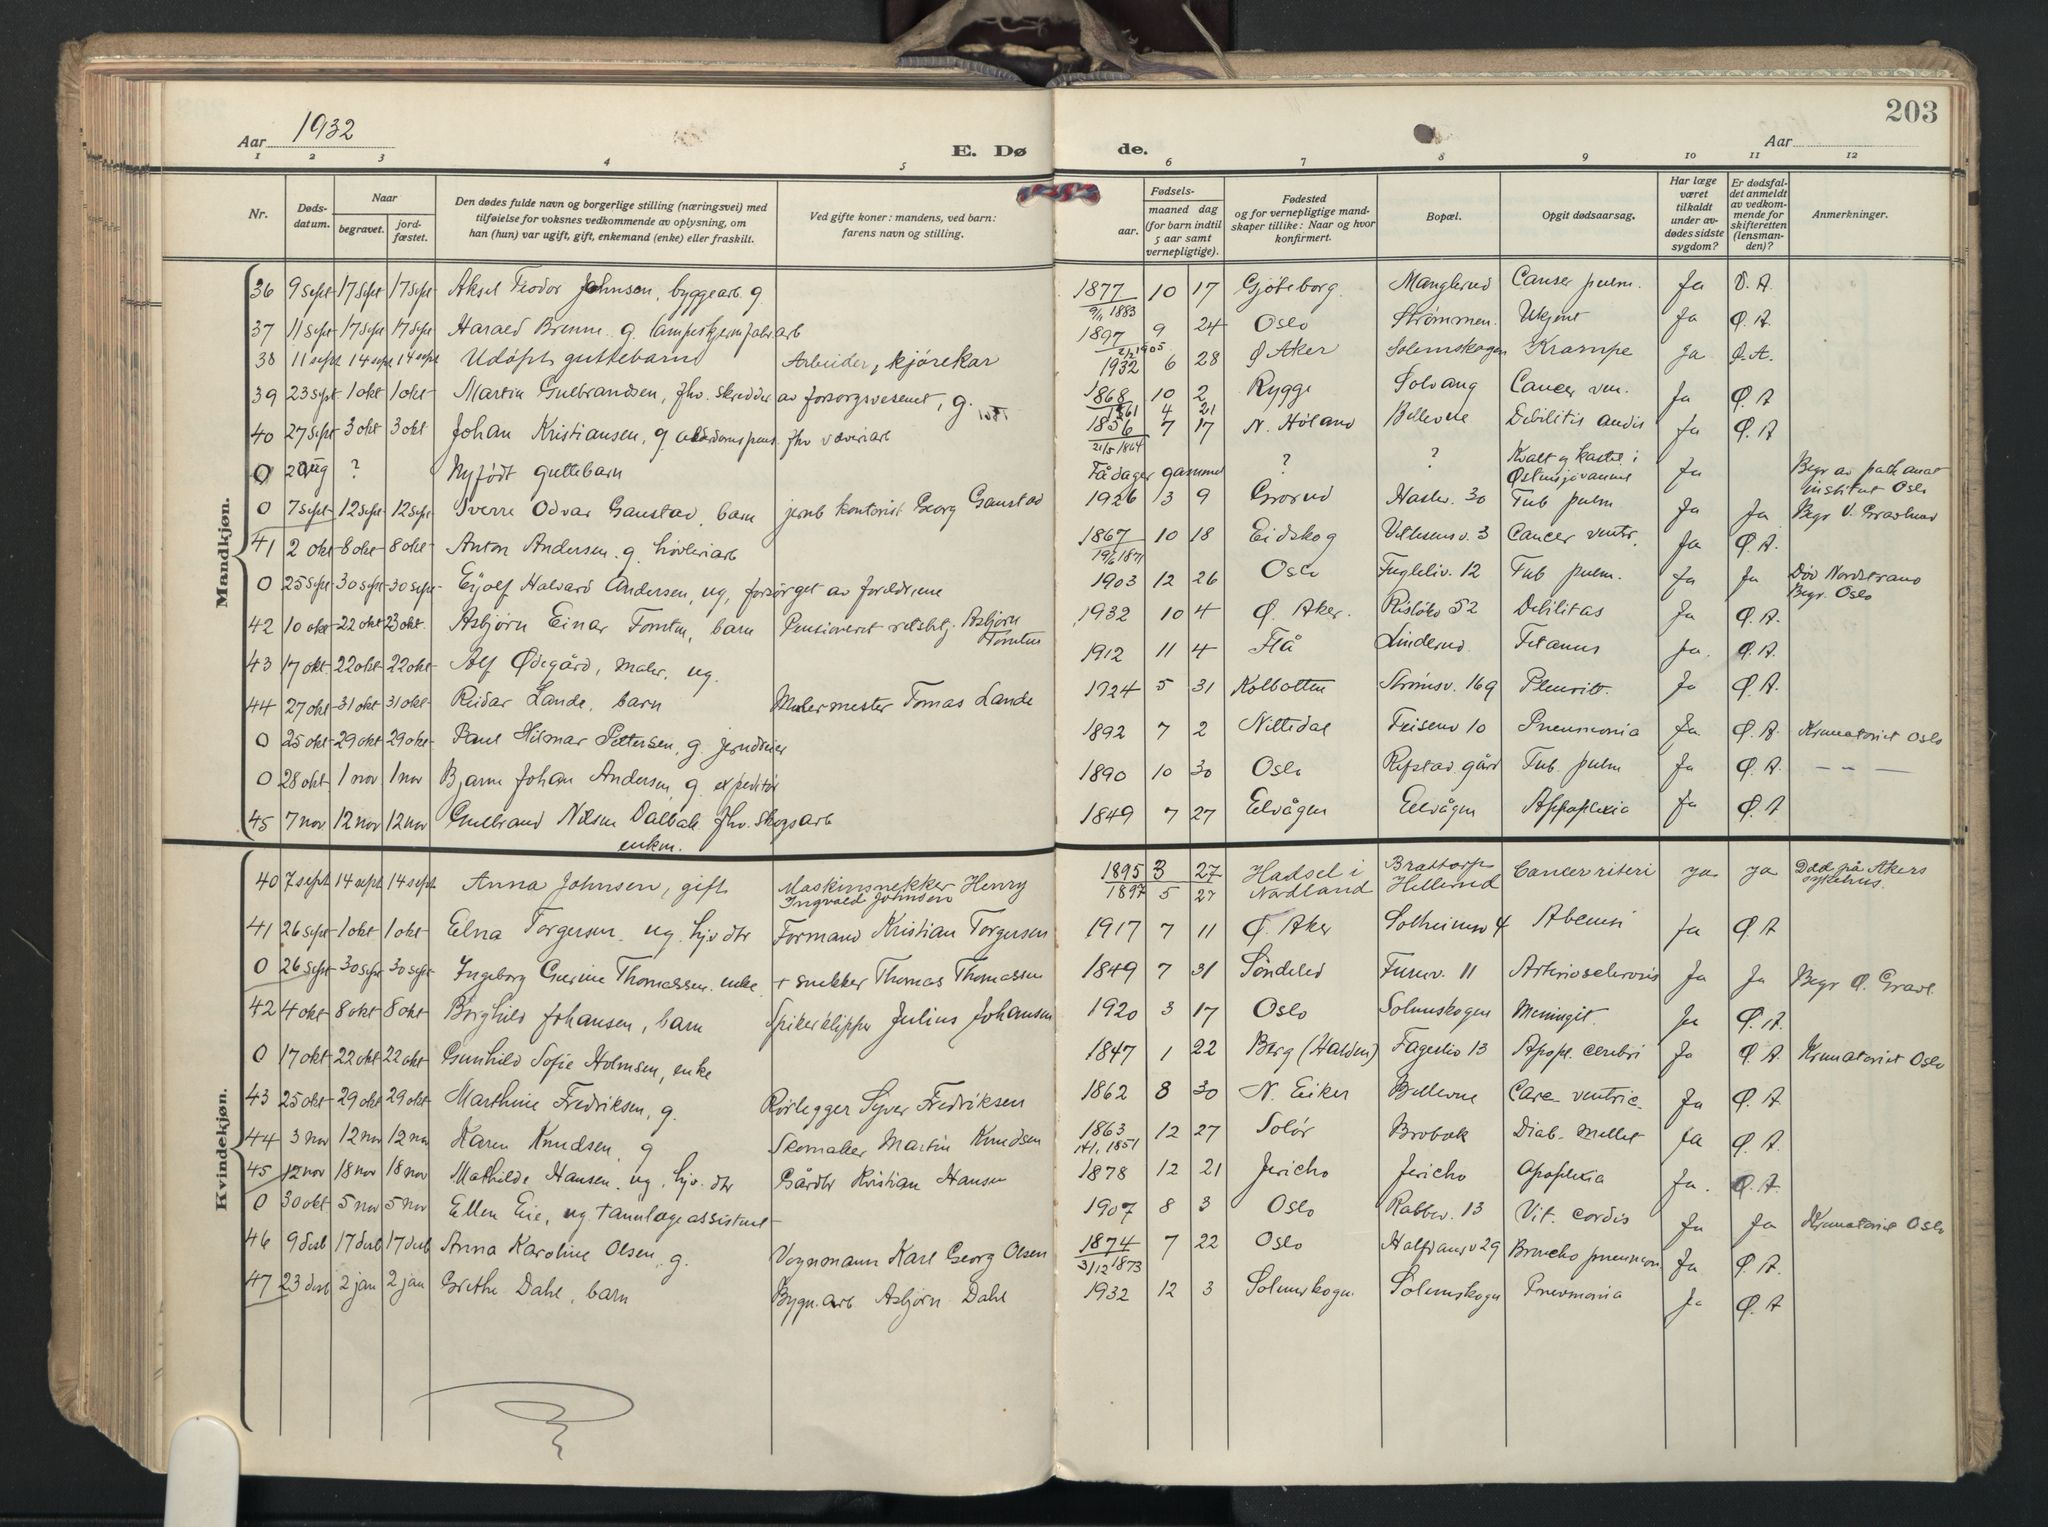 203
Aar 1932
E. Døde.
Aar
1 2 3 4 5 6 7 8 9 10 11 12
Nr.
Dødsdatum.
Naar
begravet.
jordfæstet.
Den dødes fulde navn og borgerlige stilling (næringsvei) med
tilføielse for voksnes vedkommende av oplysning, om
han (hun) var ugift, gift, enkemand (enke) eller fraskilt.
Ved gifte koner: mandens, ved barn:
farens navn og stilling.
Fødsels-
aar.
maaned dag
(for barn indtil
5 aar samt
vernepligtige).
Fødested
og for vernepligtige mand-
skaper tillike: Naar og hvor
konfirmert.
Bopæl.
Opgit dødsaarsag.
Har læge
været
tilkaldt
under av-
dødes sidste
sygdom?
Er dødsfal-
det anmeldt
av vedkom-
mende for
skifteretten
(lensman-
den)?
Anmerkninger.
Mandkjøn.
36 9 sept 17 sept 17 sept Aksel Teodor Johnsen, byggearb. g. 1877 10 17 Gjöteborg. Manglerud Canser pulm. Ja Ø. A.
9/11 1883
37 11 sept 17 sept 17 sept Harald Brenne g. lampeskjermfabr arb 1897 9 24 Oslo Strømmen. Ukjent Ja Ø. A.
1905
38 11 sept 14 sept 14 sept Udøpt guttebarn Arbeider, kjørekar 1932 6 28 Ø Aker Solemskogen Krampe Ja Ø. A.
39 23 sept 1 okt 1 okt Martin Gulbrandsen, fhv. skredder av forsorgsvesenet, g. 1868 10 2 Rygge Solvang Cancer ven. Ja Ø. A
1861 4 21
40 27 sept 3 okt 3 okt Johan Kristiansen, g. alderdomspens. fhv væveriarb 1856 7 17 N. Høland Bellevue Debilitis Ja Ø. A
21/5 1864
0 2 aug ? Nyfødt guttebarn Få dager gammel ? ? Kvalt og kastet i Østensjøvannet Ja Begr av path anat institut Oslo
0 7 sept 12 sept 12 sept Sverre Odvar Ganstad, barn jernb kontorist Georg Ganstad 1926 3 9 Grorud Haslev. 30 Tub pulm Ja Ja Begr V. Gravlund
41 2 okt 8 okt 8 okt Anton Andersen. g. høvleriarb 1867 10 18 Eidskog v. 3 Cancer ventr. Ja Ø. A.
19/6 1871
0 25 sept 30 sept 30 sept Eyolf Halvard Andersen, ug, forsørget av foreldrene 1903 12 26 Oslo Fugleliv. 12 Tub pulm. Ja Ja Død Nordstrand Begr. Oslo
42 10 okt 22 okt 23 okt. Asbjørn Einar Tomten, barn Pensioneret retsbtj. Asbjørn Tomten 1932 10 4 Ø. Aker. Risløkv 52 Debilitas Ja Ø. A.
43 17 okt 22 okt 22 okt Alf Ødegård, maler, ug. 1912 11 4 Flå Linderud. Tetanus Ja. Ø. A.
44 27 okt 31 okt 31 okt Reidar Lande, barn Malermester Tomas Lande 1924 5 31 Kolbotten Strømsv. 169 Pleuritt. Ja Ø. A.
0 25 okt 29 okt 29 okt Paul Hilmar Pettersen, g. jerndreier 1892 7 2 Nittedal 10 Pneumonia Ja Ø. A. Krematoriet Oslo
0 28 okt 1 nov 1 nov Bjarne Johan Andersen, g. expeditør 1890 10 30 Oslo Refstad gård Tub. pulm Ja Ø. A. — — —
45 7 nov 12 nov 12 nov Gulbrand Nilsen Dalbak fhv. skogsarb enkm. 1849 7 27 Eelvågen Eelvågen Appoplexia Ja Ø. A
Kvindekjøn.
40 7 sept 14 sept 14 sept Anna Johnsen, gift Maskinsnekker Henry Ingvald Johnsen 1895 3 27 Hadsel i Nordland Brattorp Hellerud Cancer riteri ja ja Død på Akers sykehus.
1897 5 27
41 26 sept 1 okt 1 okt Elna Torgersen. ug. hjv dtr Formand Kristian Torgersen 1917 7 11 Ø. Aker Solheimsv 4 Ja Ø. A
0 26 sept 30 sept 30 sept Ingeborg Gurine Thomassen. enke + snekker Thomas Thomassen 1849 7 31 Søndeled Furuv. 11 Arteriosclerosis Ja Ja Begr Ø. Gravl.
42 4 okt 8 okt 8 okt Borghild Johansen, barn Spikerklipper Julius Johansen 1920 3 17 Oslo Solemskogen Meningit. Ja Ø. A.
0 17 okt 22 okt 22 okt Gunhild Sofie Holmsen, enke 1847 1 22 Berg (Halden) Fagerliv 13 Apopl. cerebri Ja Ø. A. Krematoriet Oslo
43 25 okt 29 okt 29 okt Marthine Fredriksen, g. Rørlegger Syver Fredriksen 1862 8 30 N. Eiker Bellevue Carc ventric Ja Ø. A.
44 3 nov 12 nov 12 nov Karen Knudsen, g Skomaker Martin Knudsen 1863 12 27 Solør Brobæk Diab. mellet Ja Ø. A.
14/1 1851
45 12 nov 18 nov 18 nov Mathilde Hansen. ug, hjv. dtr Gårdbr Kristian Hansen 1878 12 21 Jericho Jericho Apoplexia Ja. Ø. A.
0 30 okt 5 nov 5 nov Ellen Eie, ug. tannlægeassistent 1907 8 3 Oslo Rabbev. 13 Vit. cordis Ja Ja Krematoriet Oslo
46 9 desb 17 desb 17 desb Anna Karoline Olsen, g. Vognmann Karl Georg Olsen 1874 7 22 Oslo Halfdansv 29 Broncho pneumon Ja Ø. A.
3/12 1873
47 23 desb 2 jan 2 jan Grethe Dahl, barn Bygn.arb Asbjørn Dahl 1932 12 3 Solemskogen Solemskogen Pnevmonia Ja Ø. A